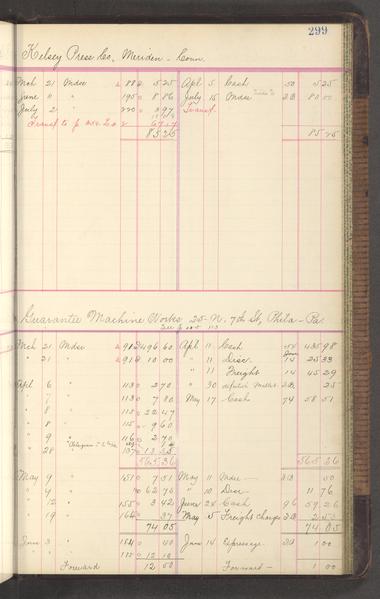 299
Kelsey Press Co, Meriden - Conn.
Mch 21 Mdse 88 5 25 Apl 5 Cash 50 5 25
June 11 " 195 8 86 July 15 Mdse 80 00
July 2 " 220 3 97 Transf.
Transf to p
85 25 85 25
Guarantee Machine Works 25 N. 7th St, Phila - Pa.
Mch 21 Mdse 91 2 496 60 Apl 11 Cash 54 435 98
" 21 " 91 10 00 " 11 Disc. 15 25 33
" 11 Freight 14 45 29
Apl 6 " 113 2 70 " 30 25
" 7 " 113 7 80 May 17 Cash 74 58 51
" 8 " 115 22 47
" 8 " 115 9 60
" 9 " 116 2 70
" 28 " 13 35
565 36 565 36
May 9 " 151 7 51 May 11 Mdse 50
" 9 " 62 75 " 10 Disc 11 76
" 12 " 155 3 42 June 24 Cash 96 59 26
" 19 " 164 37 May 5 Freight Charges 2 53
74 05 74 05
June 3 " 184 40 June 14 Expressage 1 00
" 12 10
Forward 12 50 Forward - 1 00